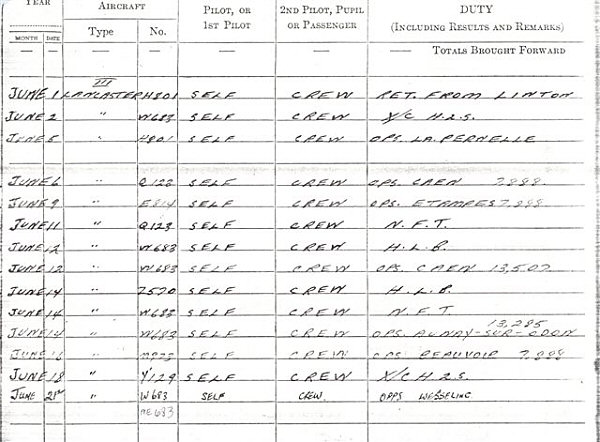 YEAR AIRCRAFT PILOT, OR 2ND PILOT, PUPIL DUTY
MONTH DATE Type No. 1ST PILOT OR PASSENGER (INCLUDING RESULTS AND REMARKS)
— — — — — — — TOTALS BROUGHT FORWARD
III
JUNE 1 LANCASTER H801 SELF CREW RET. FROM LINTON
JUNE 2 " W683 SELF CREW X/C H.2.S.
JUNE 5 " H801 SELF CREW OPS. LA. PERNELLE
JUNE 6 " Q123 SELF CREW OPS. CAEN 7,998.
JUNE 9 " E814 SELF CREW OPS. ETAMPES 7,998
JUNE 11 " Q123 SELF CREW N.F.T.
JUNE 12 " W683 SELF CREW H.L.B.
JUNE 12 " W683 SELF CREW OPS. CAEN 13,507
JUNE 14 " Z570 SELF CREW H.L.B.
JUNE 14 " W683 SELF CREW N.F.T.
13,285
JUNE 14 " W683 SELF CREW OPS. AUNAY-SUR-ODON
JUNE " SELF CREW OPS BEAUVOIR 7,998
JUNE 18 " Y129 SELF CREW X/C H2S.
JUNE 21st " W683 SELF CREW. OPPS WESSELING.
ME683